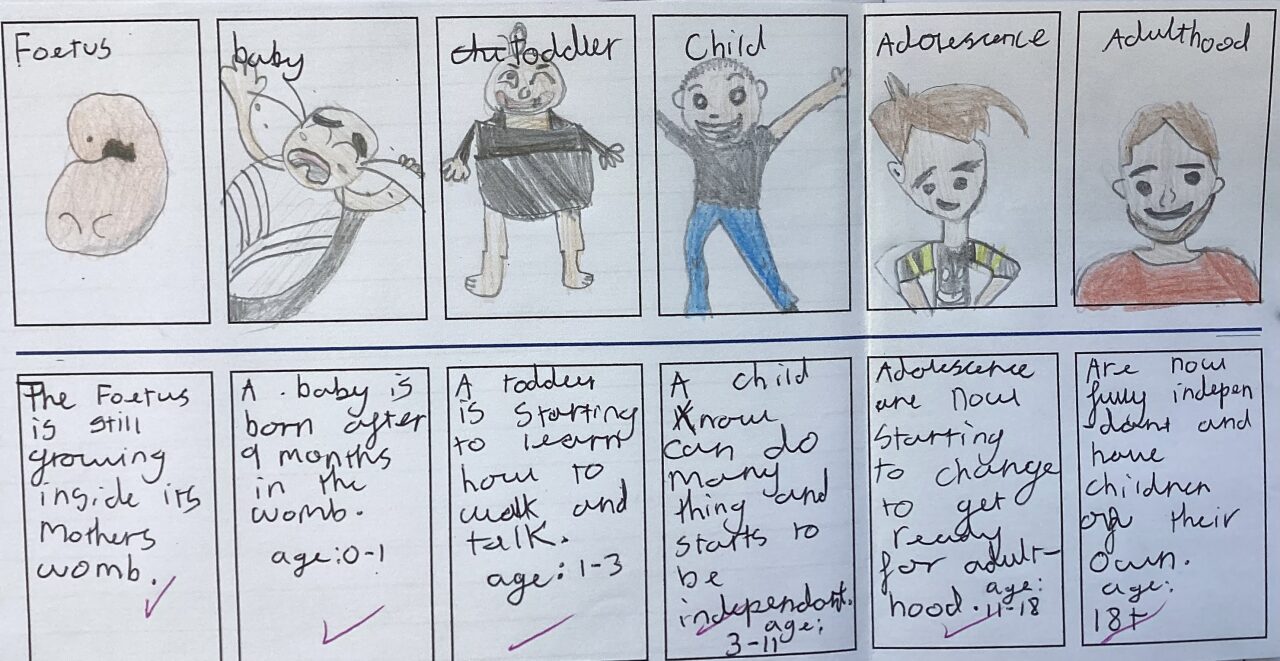 Foetus
baby
Toddler
Child
Adolescence
Adulthood
The Foetus
is still
growing
inside its
Mothers
womb.
A baby is
born after
9 months
in the
womb.
age:0-1
A toddler
is starting
to learn
how to
walk and
talk.
age: 1-3
A child
know
can do
many
thing and
starts to
be
independant.
age:
3-11
Adolescence
are now
starting
to change
to get
ready
for adult-
hood. age:
11-18
Are now
fully indepen
dant and
have
children
of their
own.
age:
18+